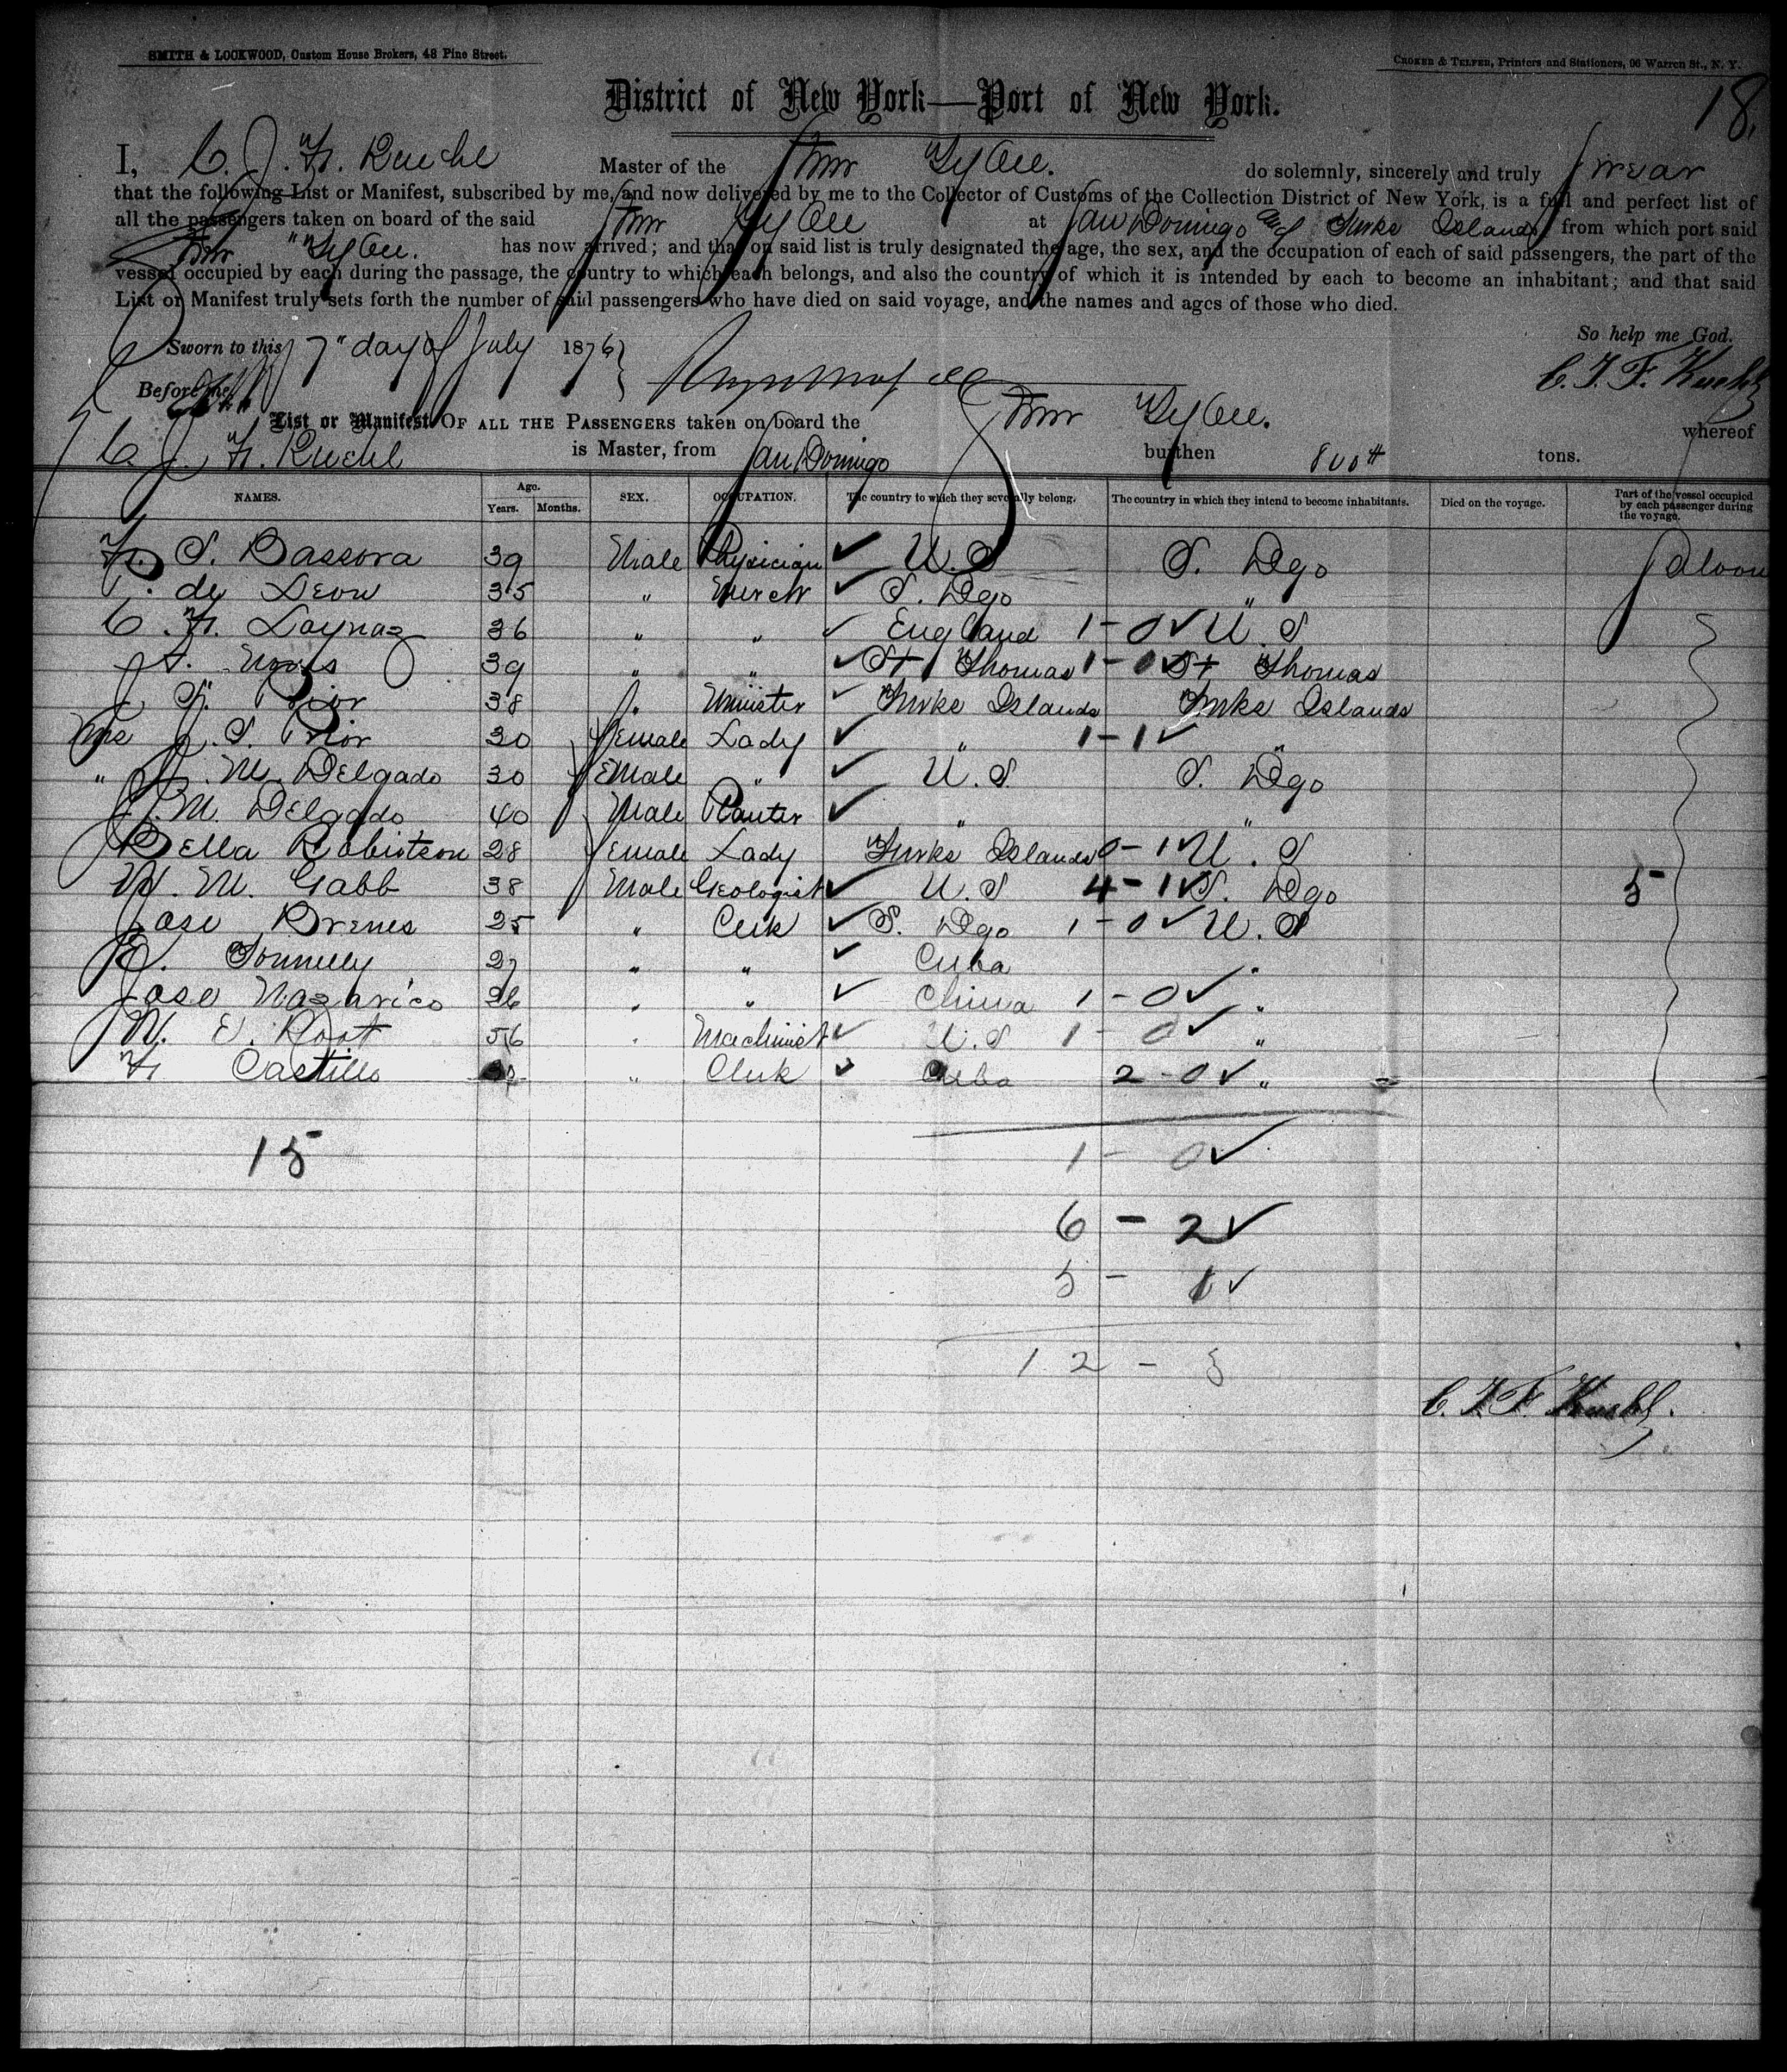 SMITH & LOCKWOOD, Custom House Brokers, 48 Pine Street.
CROKER & TELFER, Printers and Stationers, 96 Warren St., N. Y.
18.
District of New York—Port of New York.
I, C. J. F. Kuehl Master of the Stmr Tybee. do solemnly, sincerely and truly swear
that the following List or Manifest, subscribed by me, and now delivered by me to the Collector of Customs of the Collection District of New York, is a full and perfect list of
all the passengers taken on board of the said Stmr Tybee at San Domingo and Turks Islands from which port said
Stmr "Tybee. has now arrived; and that on said list is truly designated the age, the sex, and the occupation of each of said passengers, the part of the
vessel occupied by each during the passage, the country to which each belongs, and also the country of which it is intended by each to become an inhabitant; and that said
List or Manifest truly sets forth the number of said passengers who have died on said voyage, and the names and ages of those who died.
So help me God.
Sworn to this 7" day of July 1876
C. J. F. Kuehl
Before me
List or Manifest OF ALL THE PASSENGERS taken on board the Stmr Tybee. whereof
C. J. F. Kuehl is Master, from San Domingo burthen 800 tons.
NAMES. Age. Years. Months. SEX. OCCUPATION. The country to which they severally belong. The country in which they intend to become inhabitants. Died on the voyage. Part of the vessel occupied by each passenger during the voyage.
F. S. Bassora 39 Male Physician ✓ U. S S. Dgo Saloon
de Leon 35 " Merch ✓ S. Dgo "
C. F. Loynaz 36 " " ✓ England 1 - 0 ✓ U. S
39 " " ✓ St Thomas 1 - 0 ✓ St Thomas
J. S. Prior 38 Minister ✓ Turks Islands Turks Islands
Mrs J. S. Prior 30 Female Lady ✓ " 1 - 1 ✓ "
" J. M. Delgado 30 Female " ✓ U. S. S. Dgo
J. M. Delgado 40 Male Planter ✓ " "
Bella Robinson 28 Female Lady Turks Islands 0 - 1 ✓ U. S
W. M. Gabb 38 Male Geologist ✓ U. S 4 - 1 ✓ S. Dgo 5
Jose Brenes 25 " Clerk ✓ S. Dgo 1 - 0 ✓ U. S
27 " " ✓ Cuba "
Jose Nazarico 26 " " ✓ China 1 - 0 ✓ "
W. E. Root 56 " Machinist ✓ U. S 1 - 0 ✓ "
F. Castillo " Clerk ✓ Cuba 2 - 0 ✓ "
15
1 - 0 ✓
6 - 2 ✓
5 - 1 ✓
12 - 3
C. J. F. Kuehl.